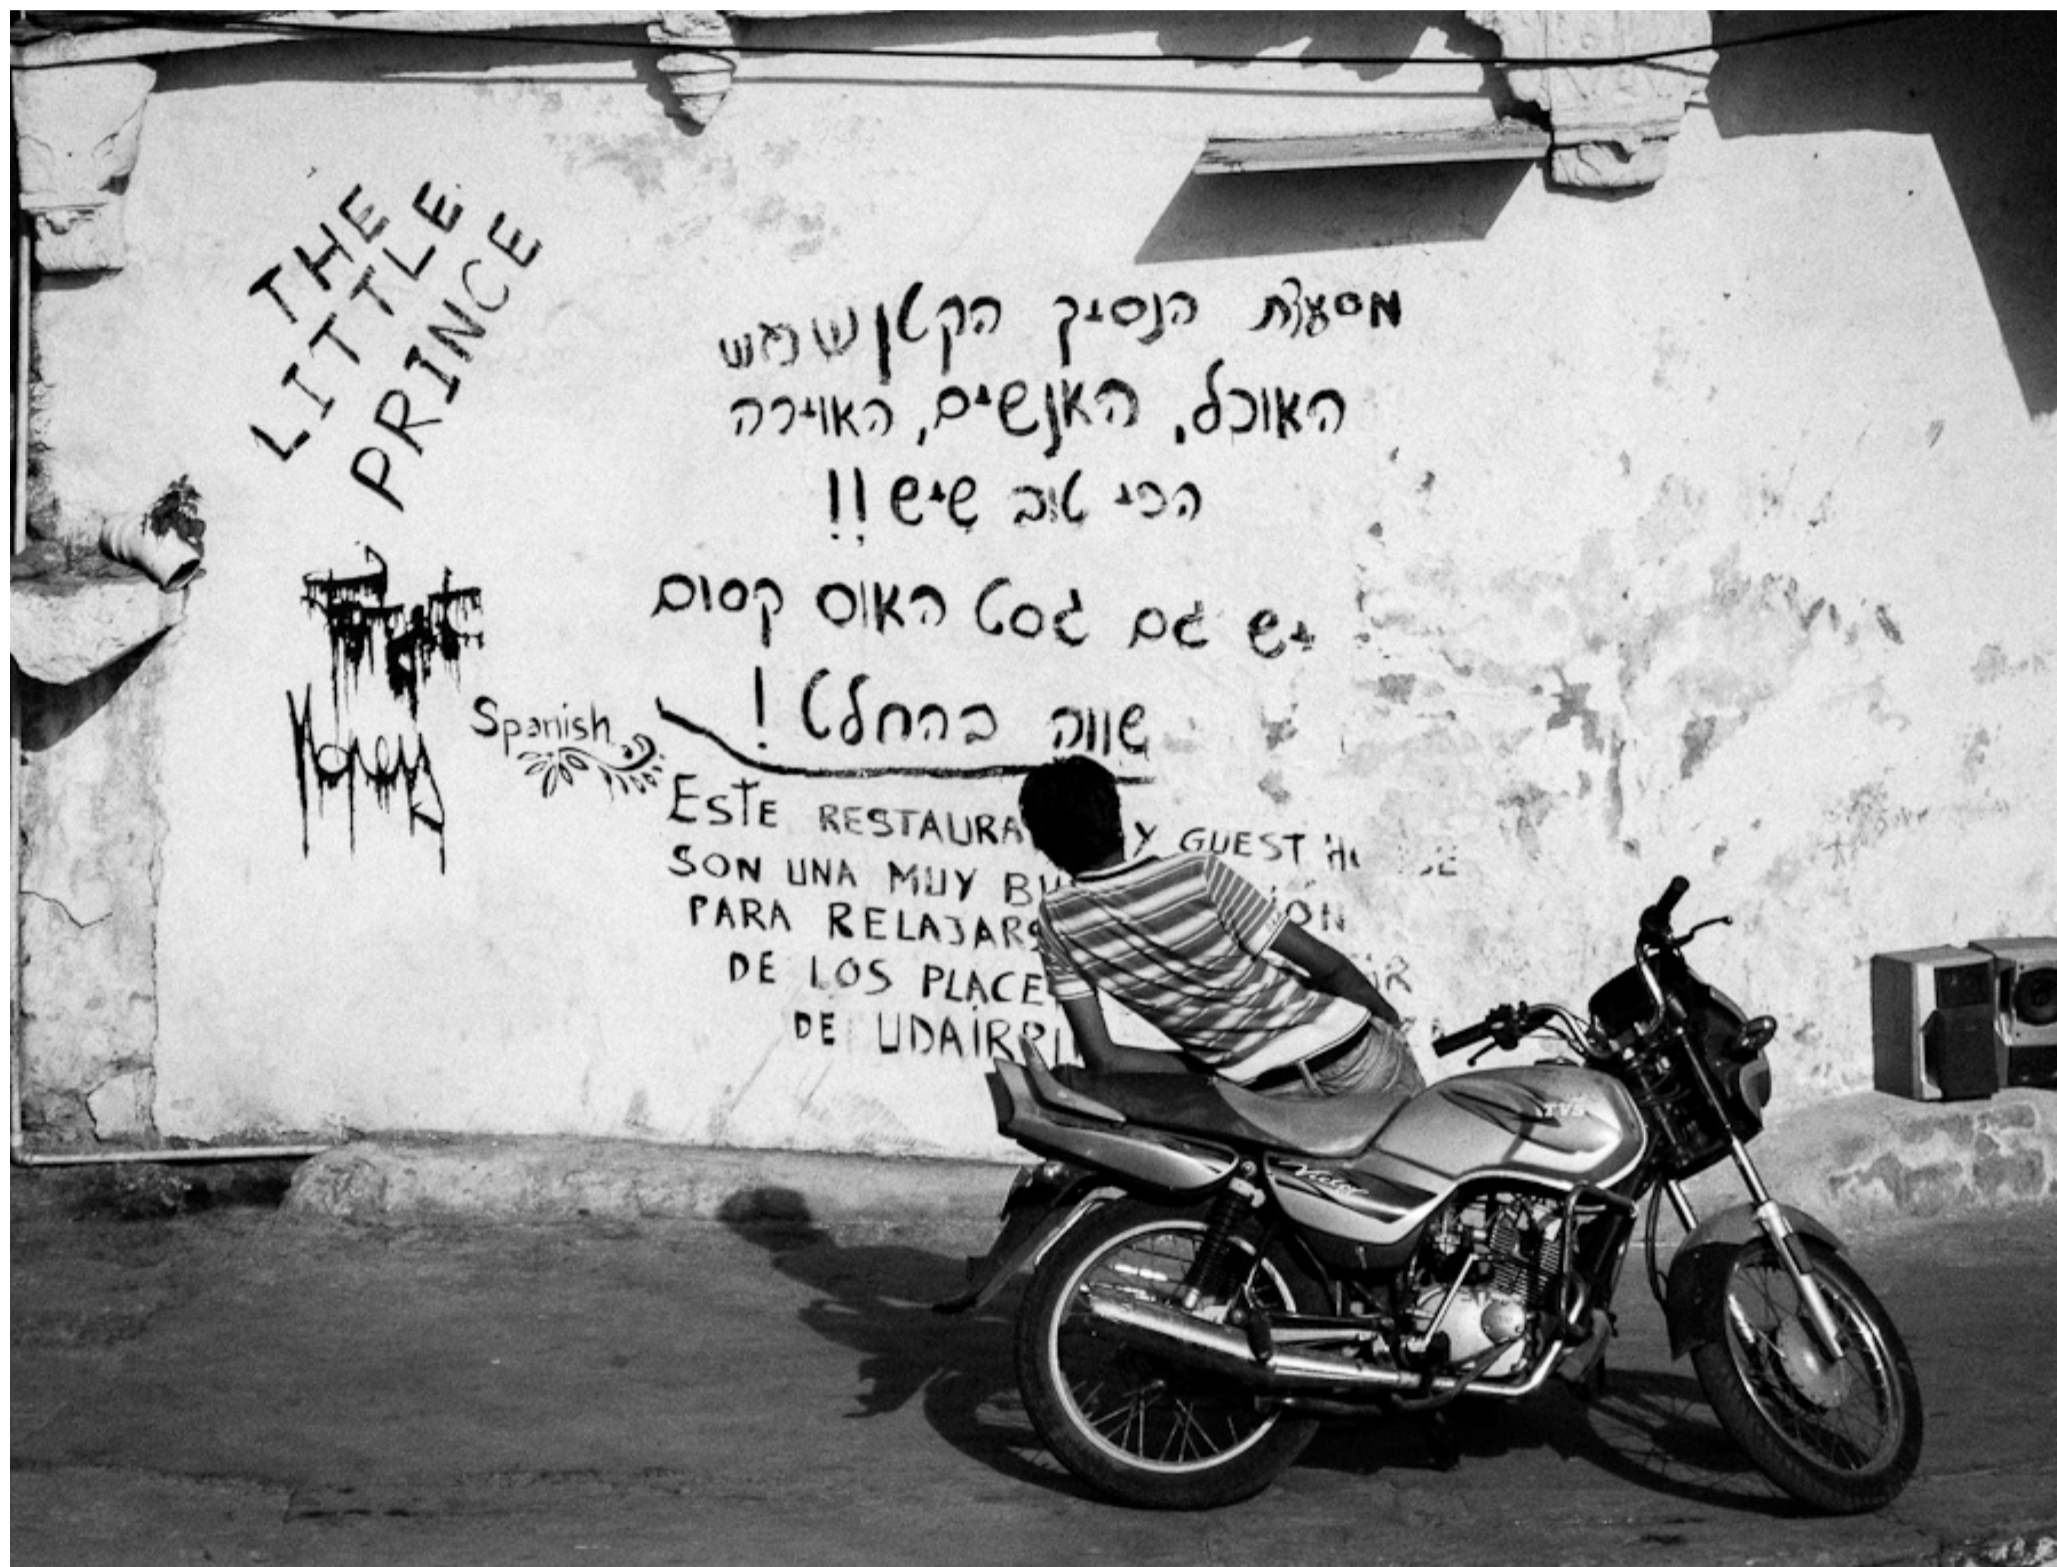 THE
LITTLE
PRINCE
מסעדת הנסיך הקטן
האוכל, האנשים, האוירה
הכי טוב שיש!!
יש גם גסט האוס קסום
שווה בהחלט!
Spanish
ESTE RESTAURA Y GUEST
SON UNA MUY BU
PARA RELAJARS
DE LOS PLACE
DE UDAIRPI
TVS
Victor